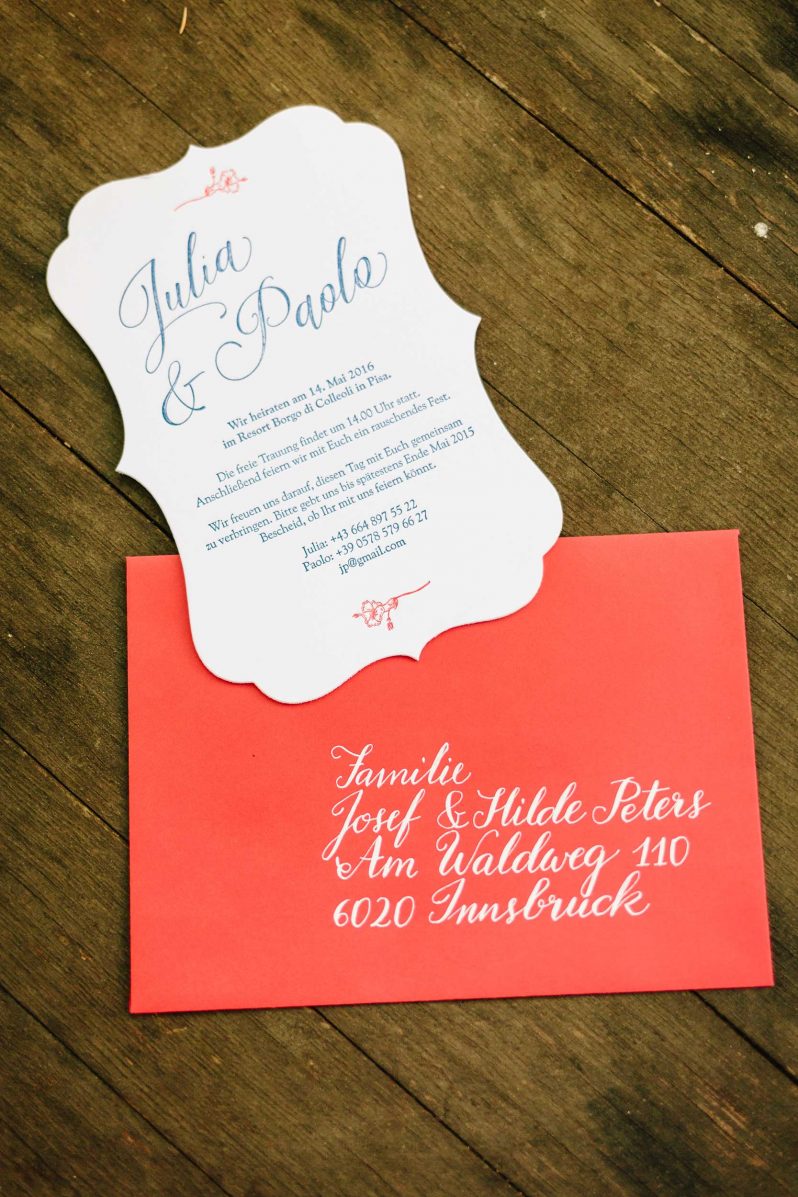 Julia
& Paolo
Wir heiraten am 14. Mai 2016
im Resort Borgo di Colleoli in Pisa.
Die freie Trauung findet um 14.00 Uhr statt.
Anschließend feiern wir mit Euch ein rauschendes Fest.
Wir freuen uns darauf, diesen Tag mit Euch gemeinsam
zu verbringen. Bitte gebt uns bis spätestens Ende Mai 2015
Bescheid, ob Ihr mit uns feiern könnt.
Julia: +43 664 897 55 22
Paolo: +39 0578 579 66 27
jp@gmail.com
Familie
Josef & Hilde Peters
Am Waldweg 110
6020 Innsbruck